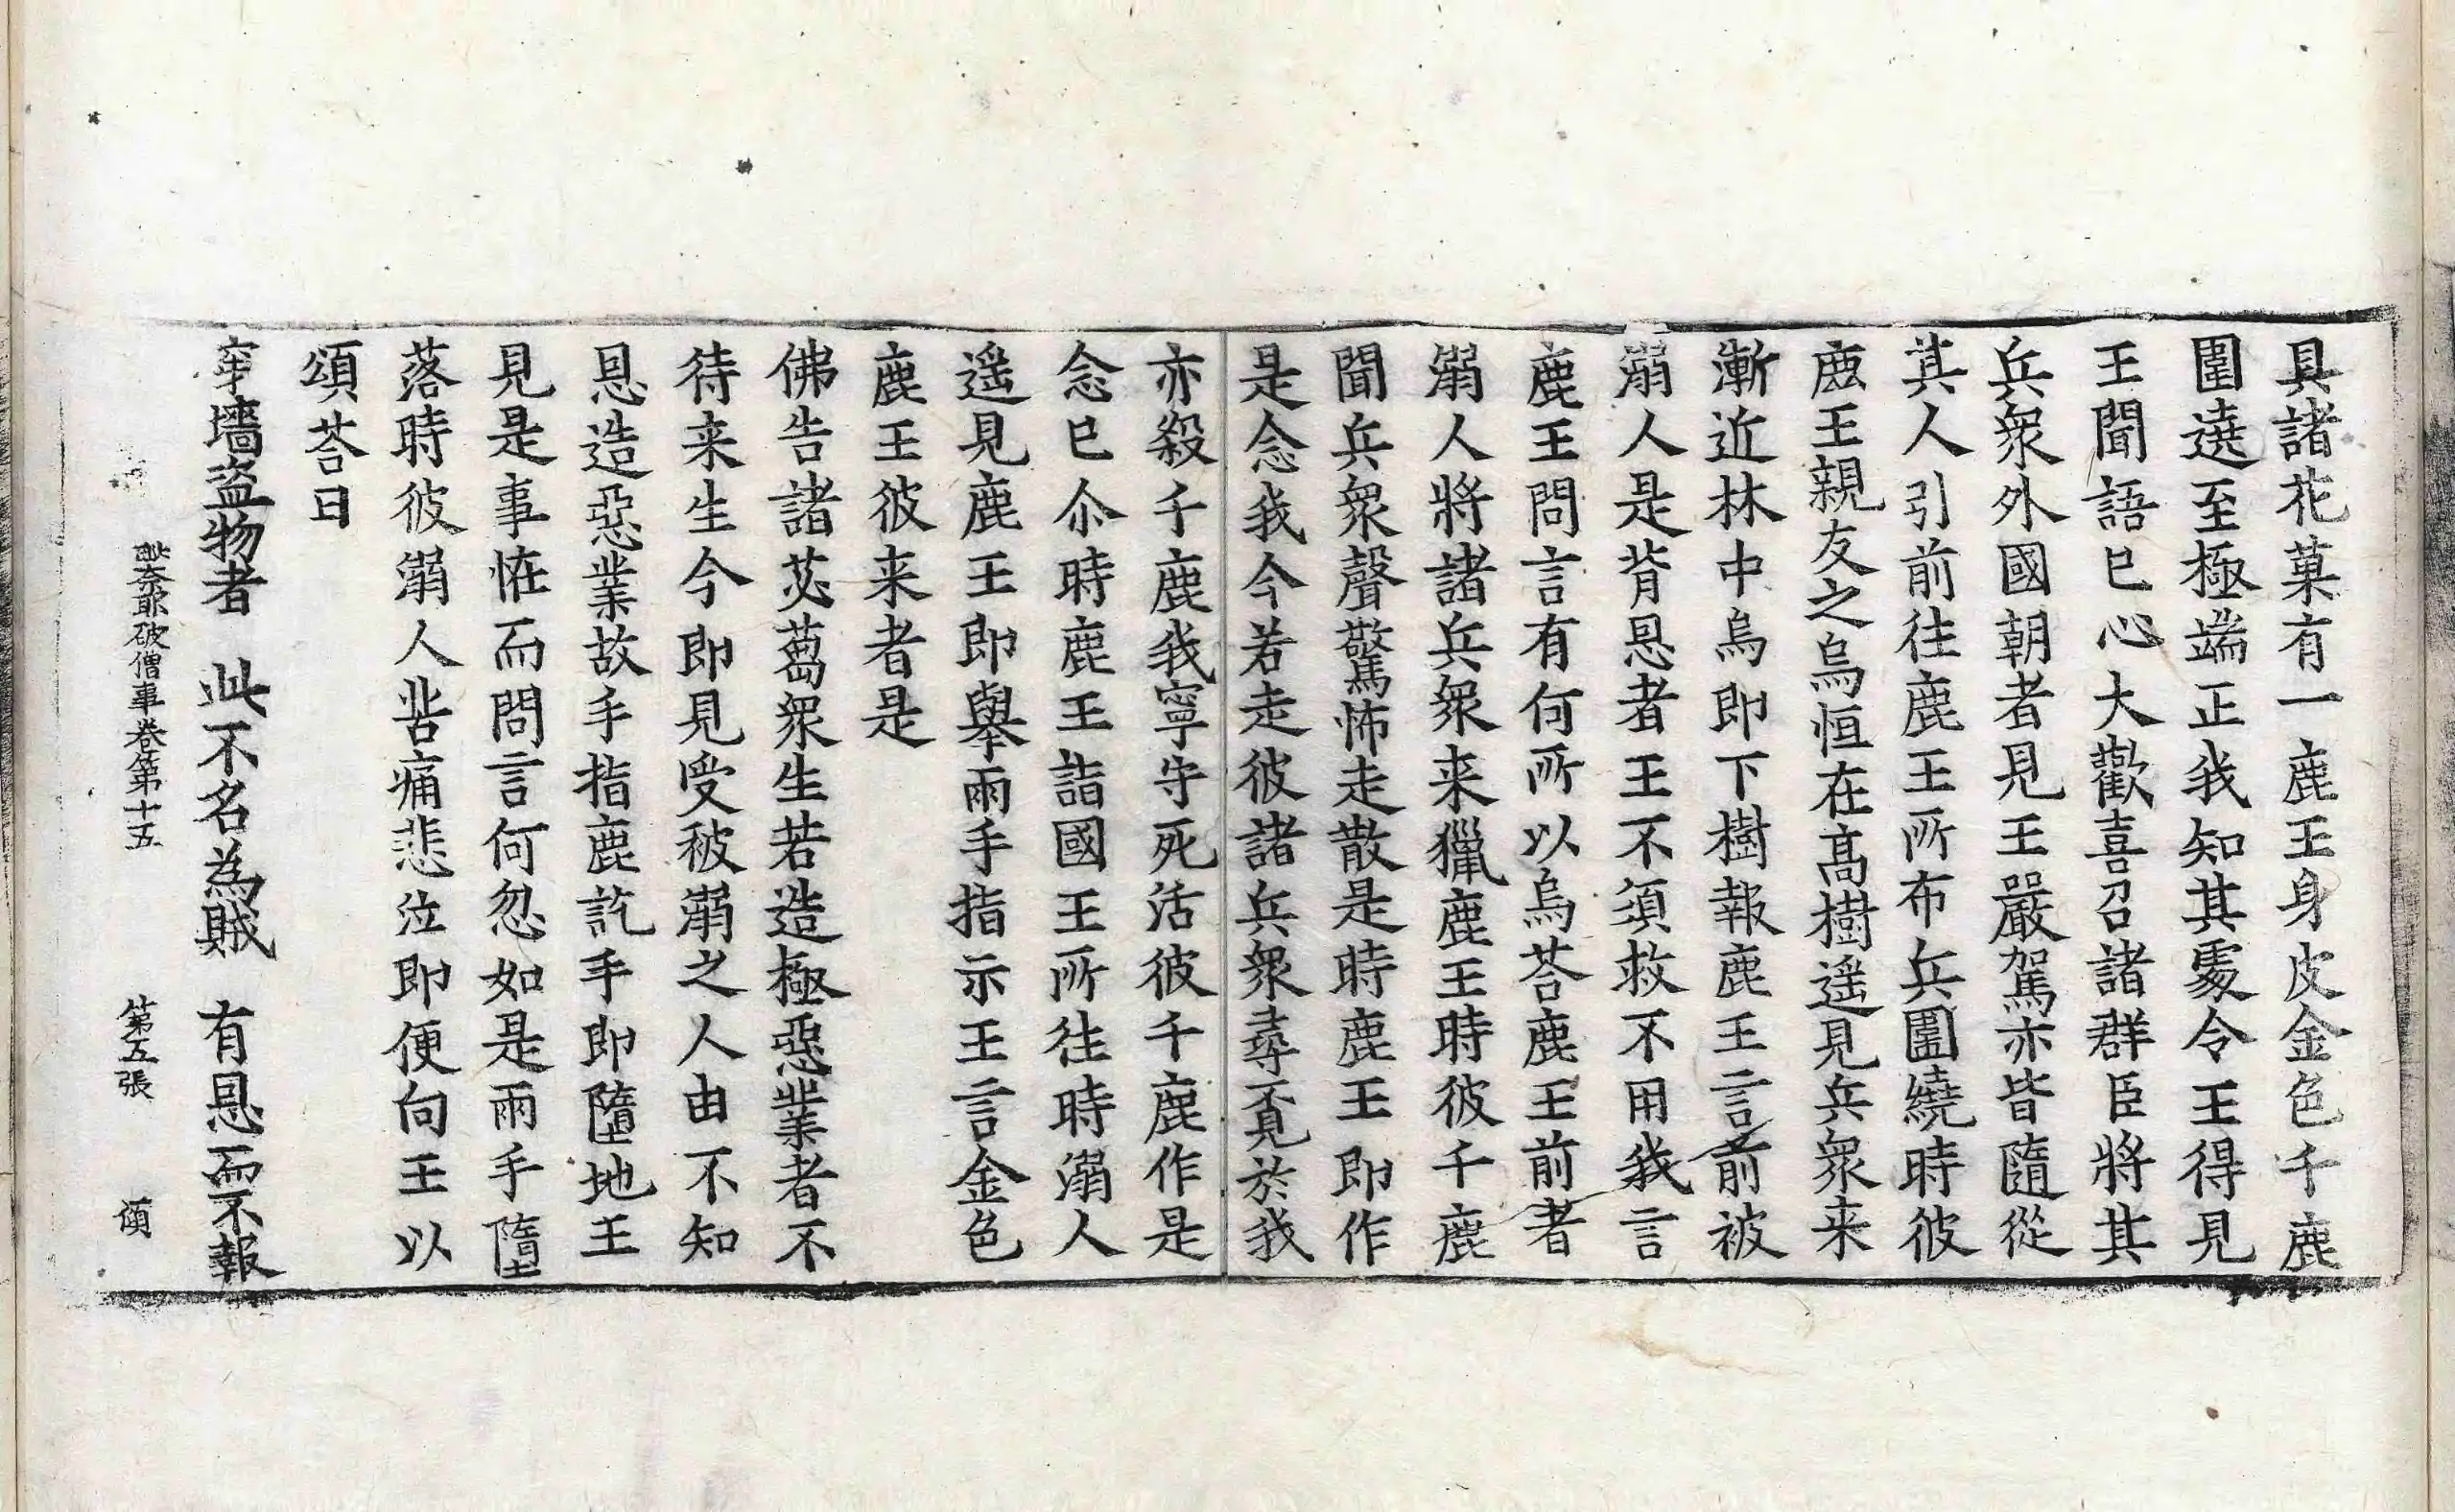 具諸花菓有一鹿王身皮金色千鹿
圍遶至極端正我知其處令王得見
王聞語已心大歡喜召諸群臣將其
兵衆外國朝者見王嚴駕亦皆隨從
其人引前往鹿王所布兵圍繞時彼
鹿王親友之烏恒在髙樹遥見兵衆来
漸近林中烏即下樹報鹿王言前被
溺人是背恩者王不須救不用我言
鹿王問言有何所以烏荅鹿王前者
溺人將諸兵衆来獵鹿王時彼千鹿
聞兵衆聲驚怖走散是時鹿王即作
是念我今若走彼諸兵衆尋覓於我
亦殺千鹿我寧守死活彼千鹿作是
念已尒時鹿王詣國王所往時溺人
遥見鹿王即舉兩手指示王言金色
鹿王彼来者是
佛告諸苾蒭衆生若造極惡業者不
待来生今即見受被溺之人由不知
恩造惡業故手指鹿訖手即墮地王
見是事恠而問言何忽如是兩手墮
落時彼溺人苦痛悲泣即便向王以
頌荅曰
穿墻盗物者　此不名為賊　有恩而不報
毗奈耶破僧事卷第十五　第五張　頌